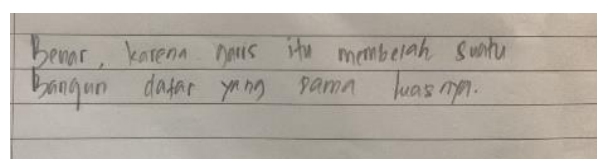 Benar, karena garis itu membelah suatu
Bangun datar yang sama luasnya.